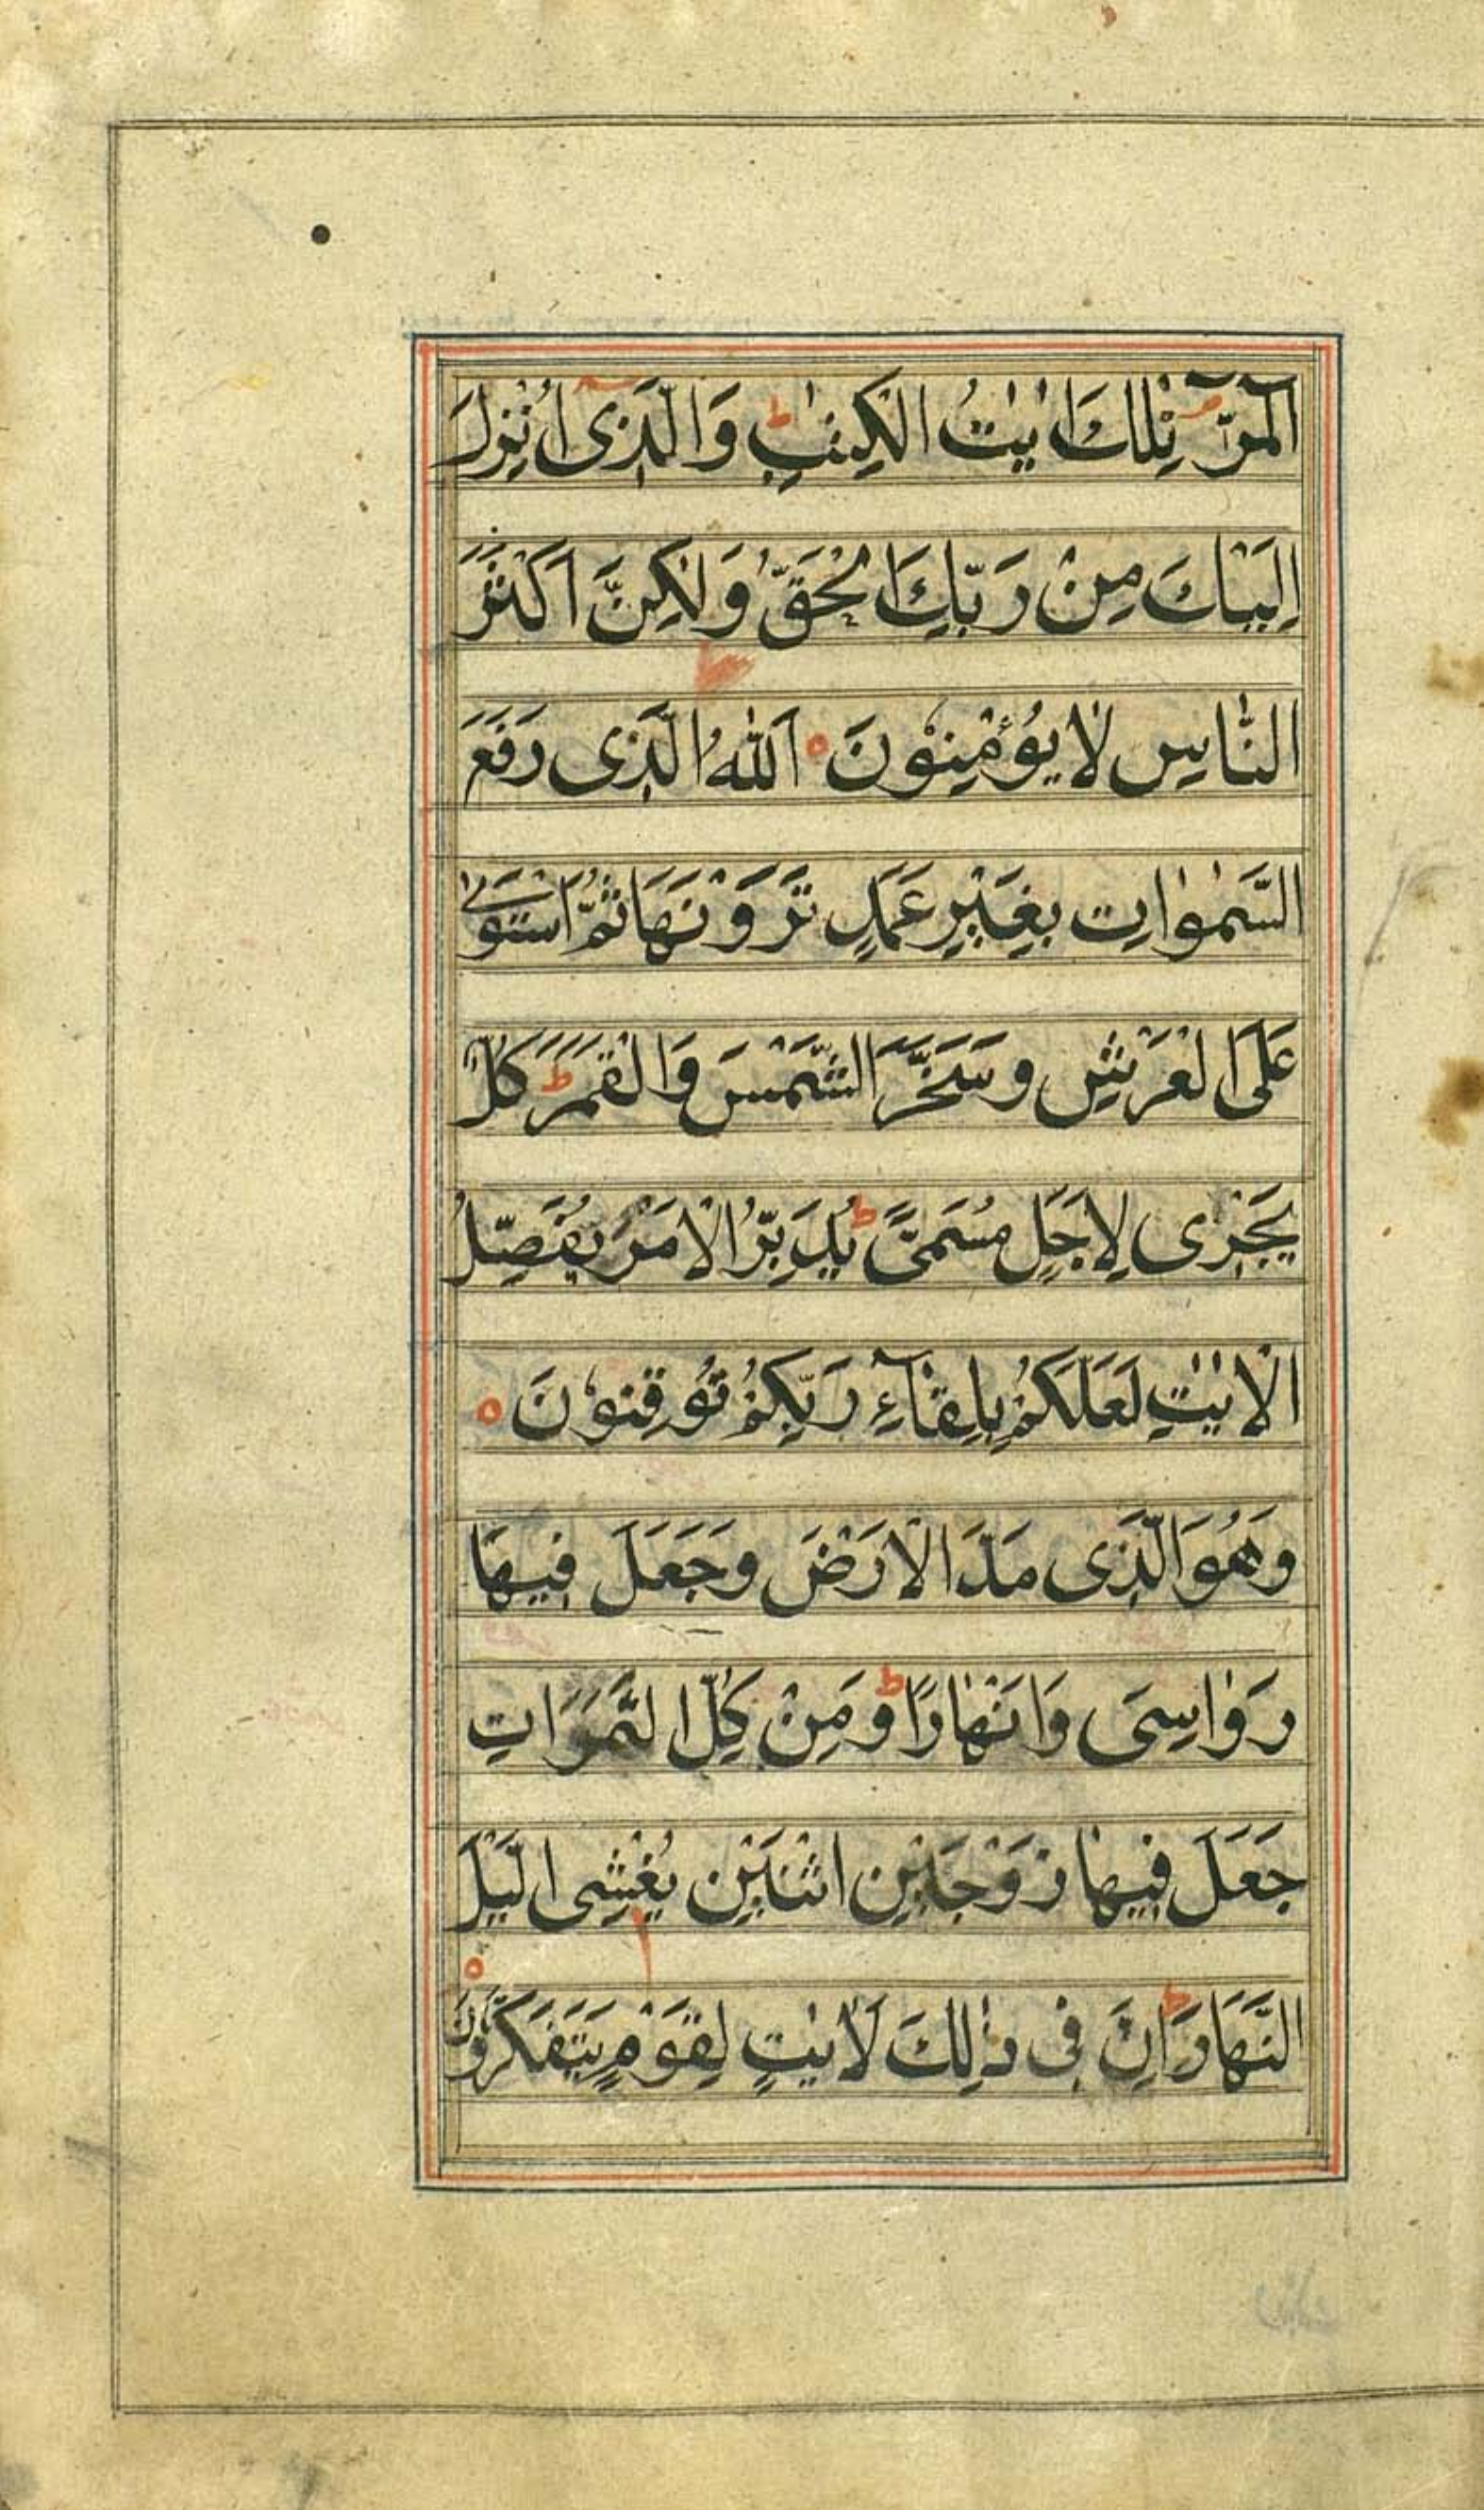 الٓمّٓرٰ تِلْكَ اٰيٰتُ الْكِتٰبِ ؕ وَالَّذِىٓ اُنْزِلَ
اِلَيْكَ مِنْ رَبِّكَ الْحَقُّ وَلٰكِنَّ اَكْثَرَ
النَّاسِ لَا يُؤْمِنُوْنَ ه اَللّٰهُ الَّذِى رَفَعَ
السَّمٰوَاتِ بِغَيْرِ عَمَدٍ تَرَوْنَهَا ثُمَّ اسْتَوٰى
عَلَى الْعَرْشِ وَسَخَّرَ الشَّمْسَ وَالْقَمَرَ ؕ كُلٌّ
يَجْرِى لِاَجَلٍ مُسَمًّى ؕ يُدَبِّرُ الْاَمْرَ يُفَصِّلُ
الْاٰيٰتِ لَعَلَّكُمْ بِلِقَآءِ رَبِّكُمْ تُوْقِنُوْنَ ه
وَهُوَ الَّذِى مَدَّ الْاَرْضَ وَجَعَلَ فِيهَا
رَوَاسِىَ وَاَنْهٰارًا ؕ وَمِنْ كُلِّ الثَّمَرَاتِ
جَعَلَ فِيهَا زَوْجَيْنِ اثْنَيْنِ يُغْشِى الَّيْلَ
النَّهَارَ ؕ اِنَّ فِى ذٰلِكَ لَاٰيٰتٍ لِقَوْمٍ يَتَفَكَّرُوْنَ ه